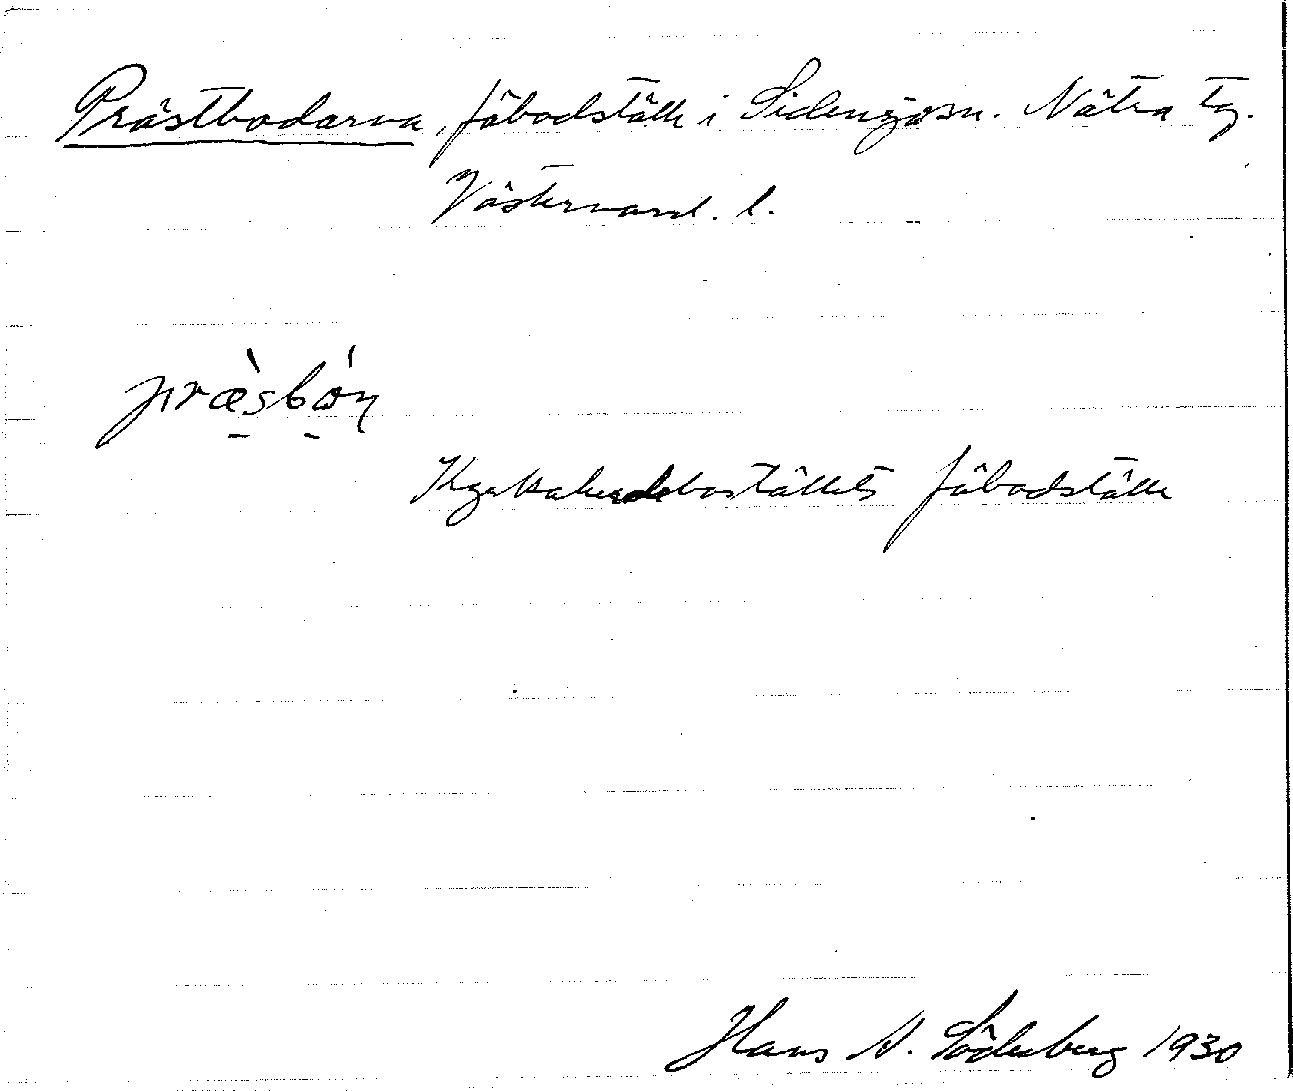 Prästbodarna, fäbodställe i Sidensjö sn. Nätra tg.
Västernorrl. l.
præ̀sbón
Kyrkoherdebostället fäbodställe
Hans N. Söderberg 1930